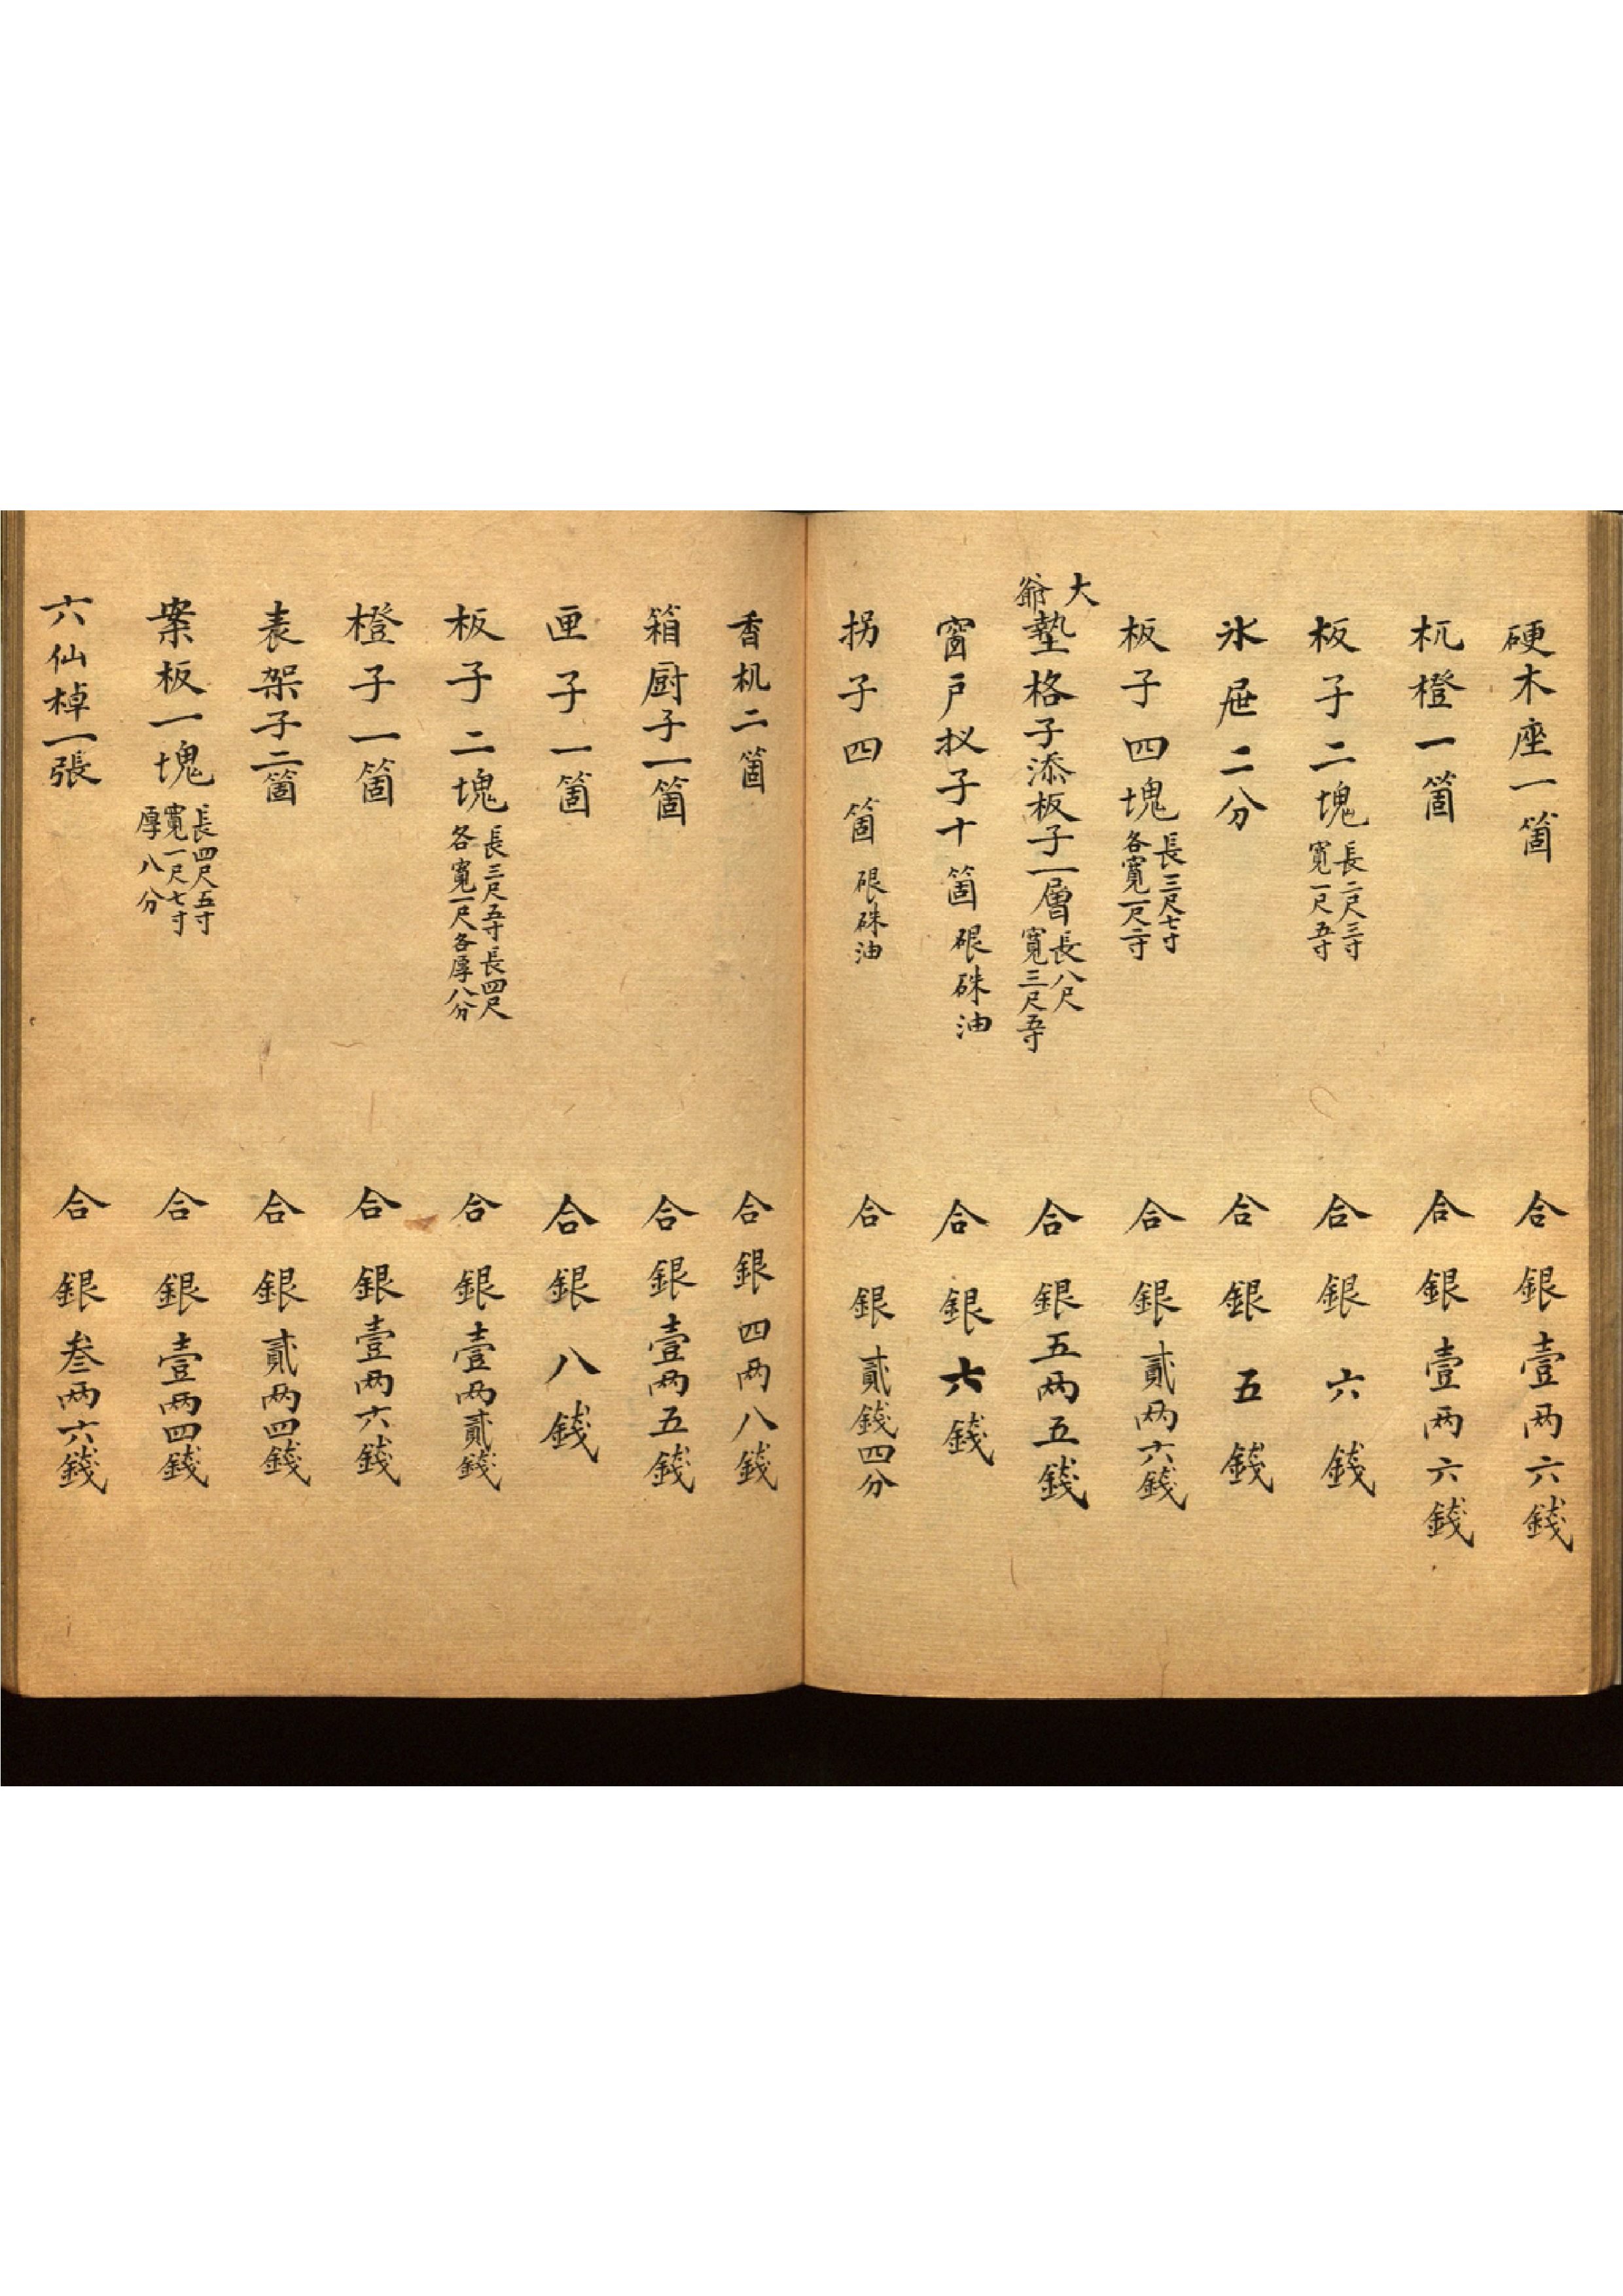 硬木座一箇 合銀壹两六錢
杌櫈一箇 合銀壹两六錢
板子二塊 長二尺三寸 寬一尺五寸 合銀六錢
氷屉二分 合銀五錢
板子四塊 長三尺七寸 各寬一尺二寸 合銀貳两六錢
大爺墊格子添板子一層 長八尺 寬三尺五寸 合銀五两五錢
窗戶杈子十箇 硍硃油 合銀六錢
拐子四箇 硍硃油 合銀貳錢四分
香机二箇 合銀四两八錢
箱厨子一箇 合銀壹两五錢
匣子一箇 合銀八錢
板子二塊 長三尺五寸長四尺 各寬一尺各厚八分 合銀壹两貳錢
橙子一箇 合銀壹两六錢
表架子二箇 合銀貳两四錢
案板一塊 長四尺五寸 寬一尺七寸 厚八分 合銀壹两四錢
六仙棹一張 合銀叁两六錢